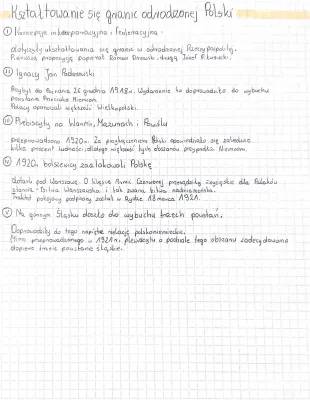 Kształtowanie się granic odrodzonej Polski
I Koncepcje inkorporacyjna i federacyjna -
dotyczyły ukształtowania się granic w odrodzonej Rzeczypospolitej.
Pierwszą propozycję popierał Roman Dmowski, drugą Józef Piłsudski.
II Ignacy Jan Paderewski
Przybył do Poznania 26 grudnia 1918r. Wydarzenie to doprowadziło do wybuchu
powstania Przeciwko Niemcom.
Polacy opanowali większość Wielkopolski.
III Plebiscyty na Warmii, Mazurach i Powiślu
przeprowadzono 1920r. Za przyłączeniem Polski opowiedziało się zaledwie
kilka procent ludności, dlatego większość tych obszarów przypadła Niemcom.
IV 1920r. bolszewicy zaatakowali Polskę
dotarli pod Warszawę. O klęsce Armii Czerwonej przesądziły zwycięskie dla Polaków
starcia - Bitwa Warszawska i tak zwana bitwa nadniemeńska.
Traktat pokojowy podpisany został w Rydze 18 marca 1921.
V Na górnym Śląsku doszło do wybuchu trzech powstań.
Doprowadziły do tego napięte relacje polskoniemieckie.
Mimo przeprowadzonego w 1921r. plebiscytu o podziale tego obszaru zadecydowało
dopiero trzecie powstanie śląskie.